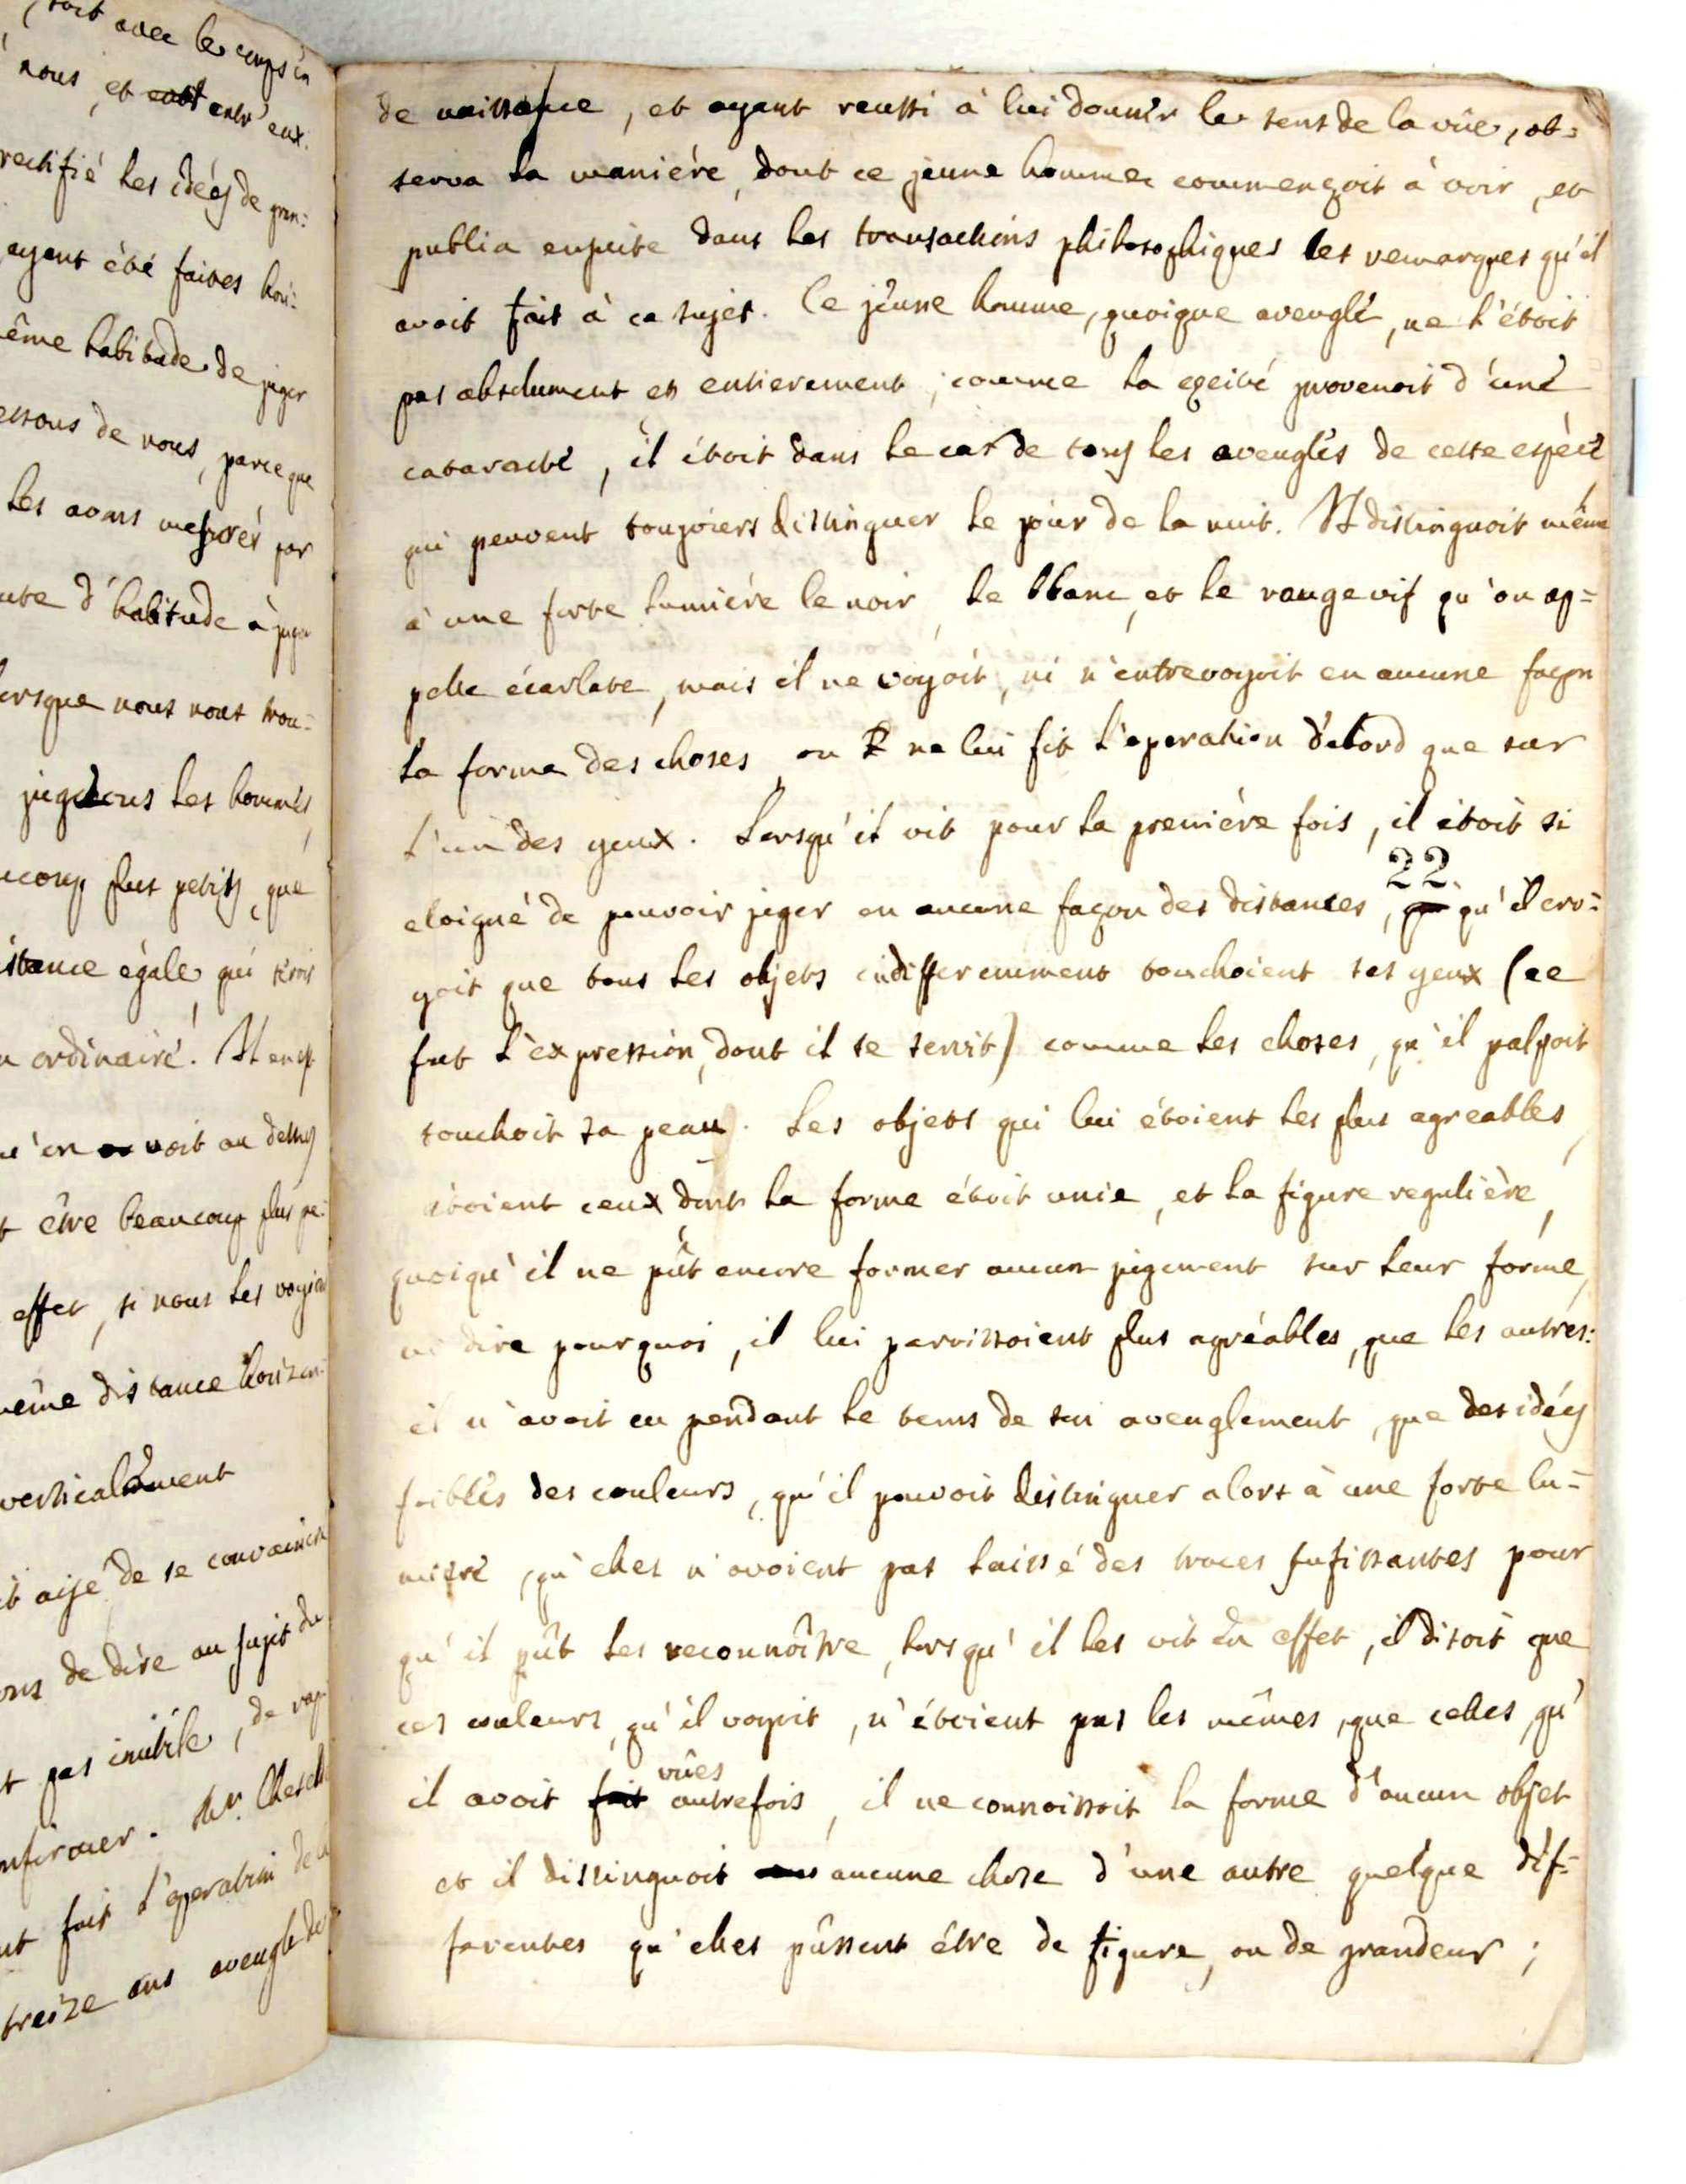 soit avec le corps in
nous, et entr'eux.
rectifié les idées de gran=
ayant été faites hori=
ême habitude de juger
essous de nous, parceque
les avons mesurés par
ute d'habitude à juger
lorsque nous nous trou=
jugeons les hommes,
ucoup plus petits, que
istance égale qui seroit
n ordinaire. Il en est
u'on voit au dessus
t être beaucoup plus pe=
effet, si nous les voyions
même distance horizon=
verticalement
it aisé de se convaincre
ons de dire au sujet du
t pas inutile, de rap
nfirmer. Mr. Cheseld
nt fait l'operation de la
treize ans aveugle de
de naissance, et ayant reussi à lui donner le sens de la vüe, ob=
serva la manière, dont ce jeune homme commençoit à voir, et
publia ensuite dans les transactions philosophiques les remarques qu'il
avoit fait à ce sujet. Ce jeune homme, quoique aveugle, ne l'étoit
pas absolument et entierement, comme la cecité provenoit d'une
cataracte, il étoit dans le cas de tous les aveugles de cette espèce
qui peuvent toujours distinguer le jour de la nuit. Il distinguoit même
à une forte lumière le noir, le blanc, et le rouge vif qu'on ap=
pelle écarlate, mais il ne voyoit, ni n'entrevoyoit en aucune façon
la forme des choses, on ne lui fit l'operation d'abord que sur
l'un des yeux. Lorsqu'il vit pour la première fois, il étoit si
22.
eloigné de pouvoir juger en aucune façon des distances, qu'il cro=
yoit que tous les objets indifferemment touchoient ses yeux (ce
fut l'expression, dont il se servit) comme les choses, qu'il palpoit
touchoit sa peau. Les objets qui lui étoient les plus agreables,
étoient ceux dont la forme étoit unie, et la figure regulière,
quoiqu'il ne pût encore former aucun jugement sur leur forme,
ni dire pourquoi, il lui paroissoient plus agréables, que les autres:
il n'avoit eu pendant le tems de son aveuglement, que des idées
foibles des couleurs, qu'il pouvoit distinguer alors à une forte lu=
mière, qu'elles n'avoient pas laissé des traces sufissantes pour
qu'il pût les reconnoître, lorsqu'il les vit en effet, il disoit que
ces couleurs, qu'il voyoit, n'étoient pas les mêmes, que celles, qu'
vûes
il avoit fait autrefois, il ne connoissoit la forme d'aucun objet
et il distinguoit aucune chose d'une autre quelque dif=
ferentes qu'elles pûssent être de figure, ou de grandeur;